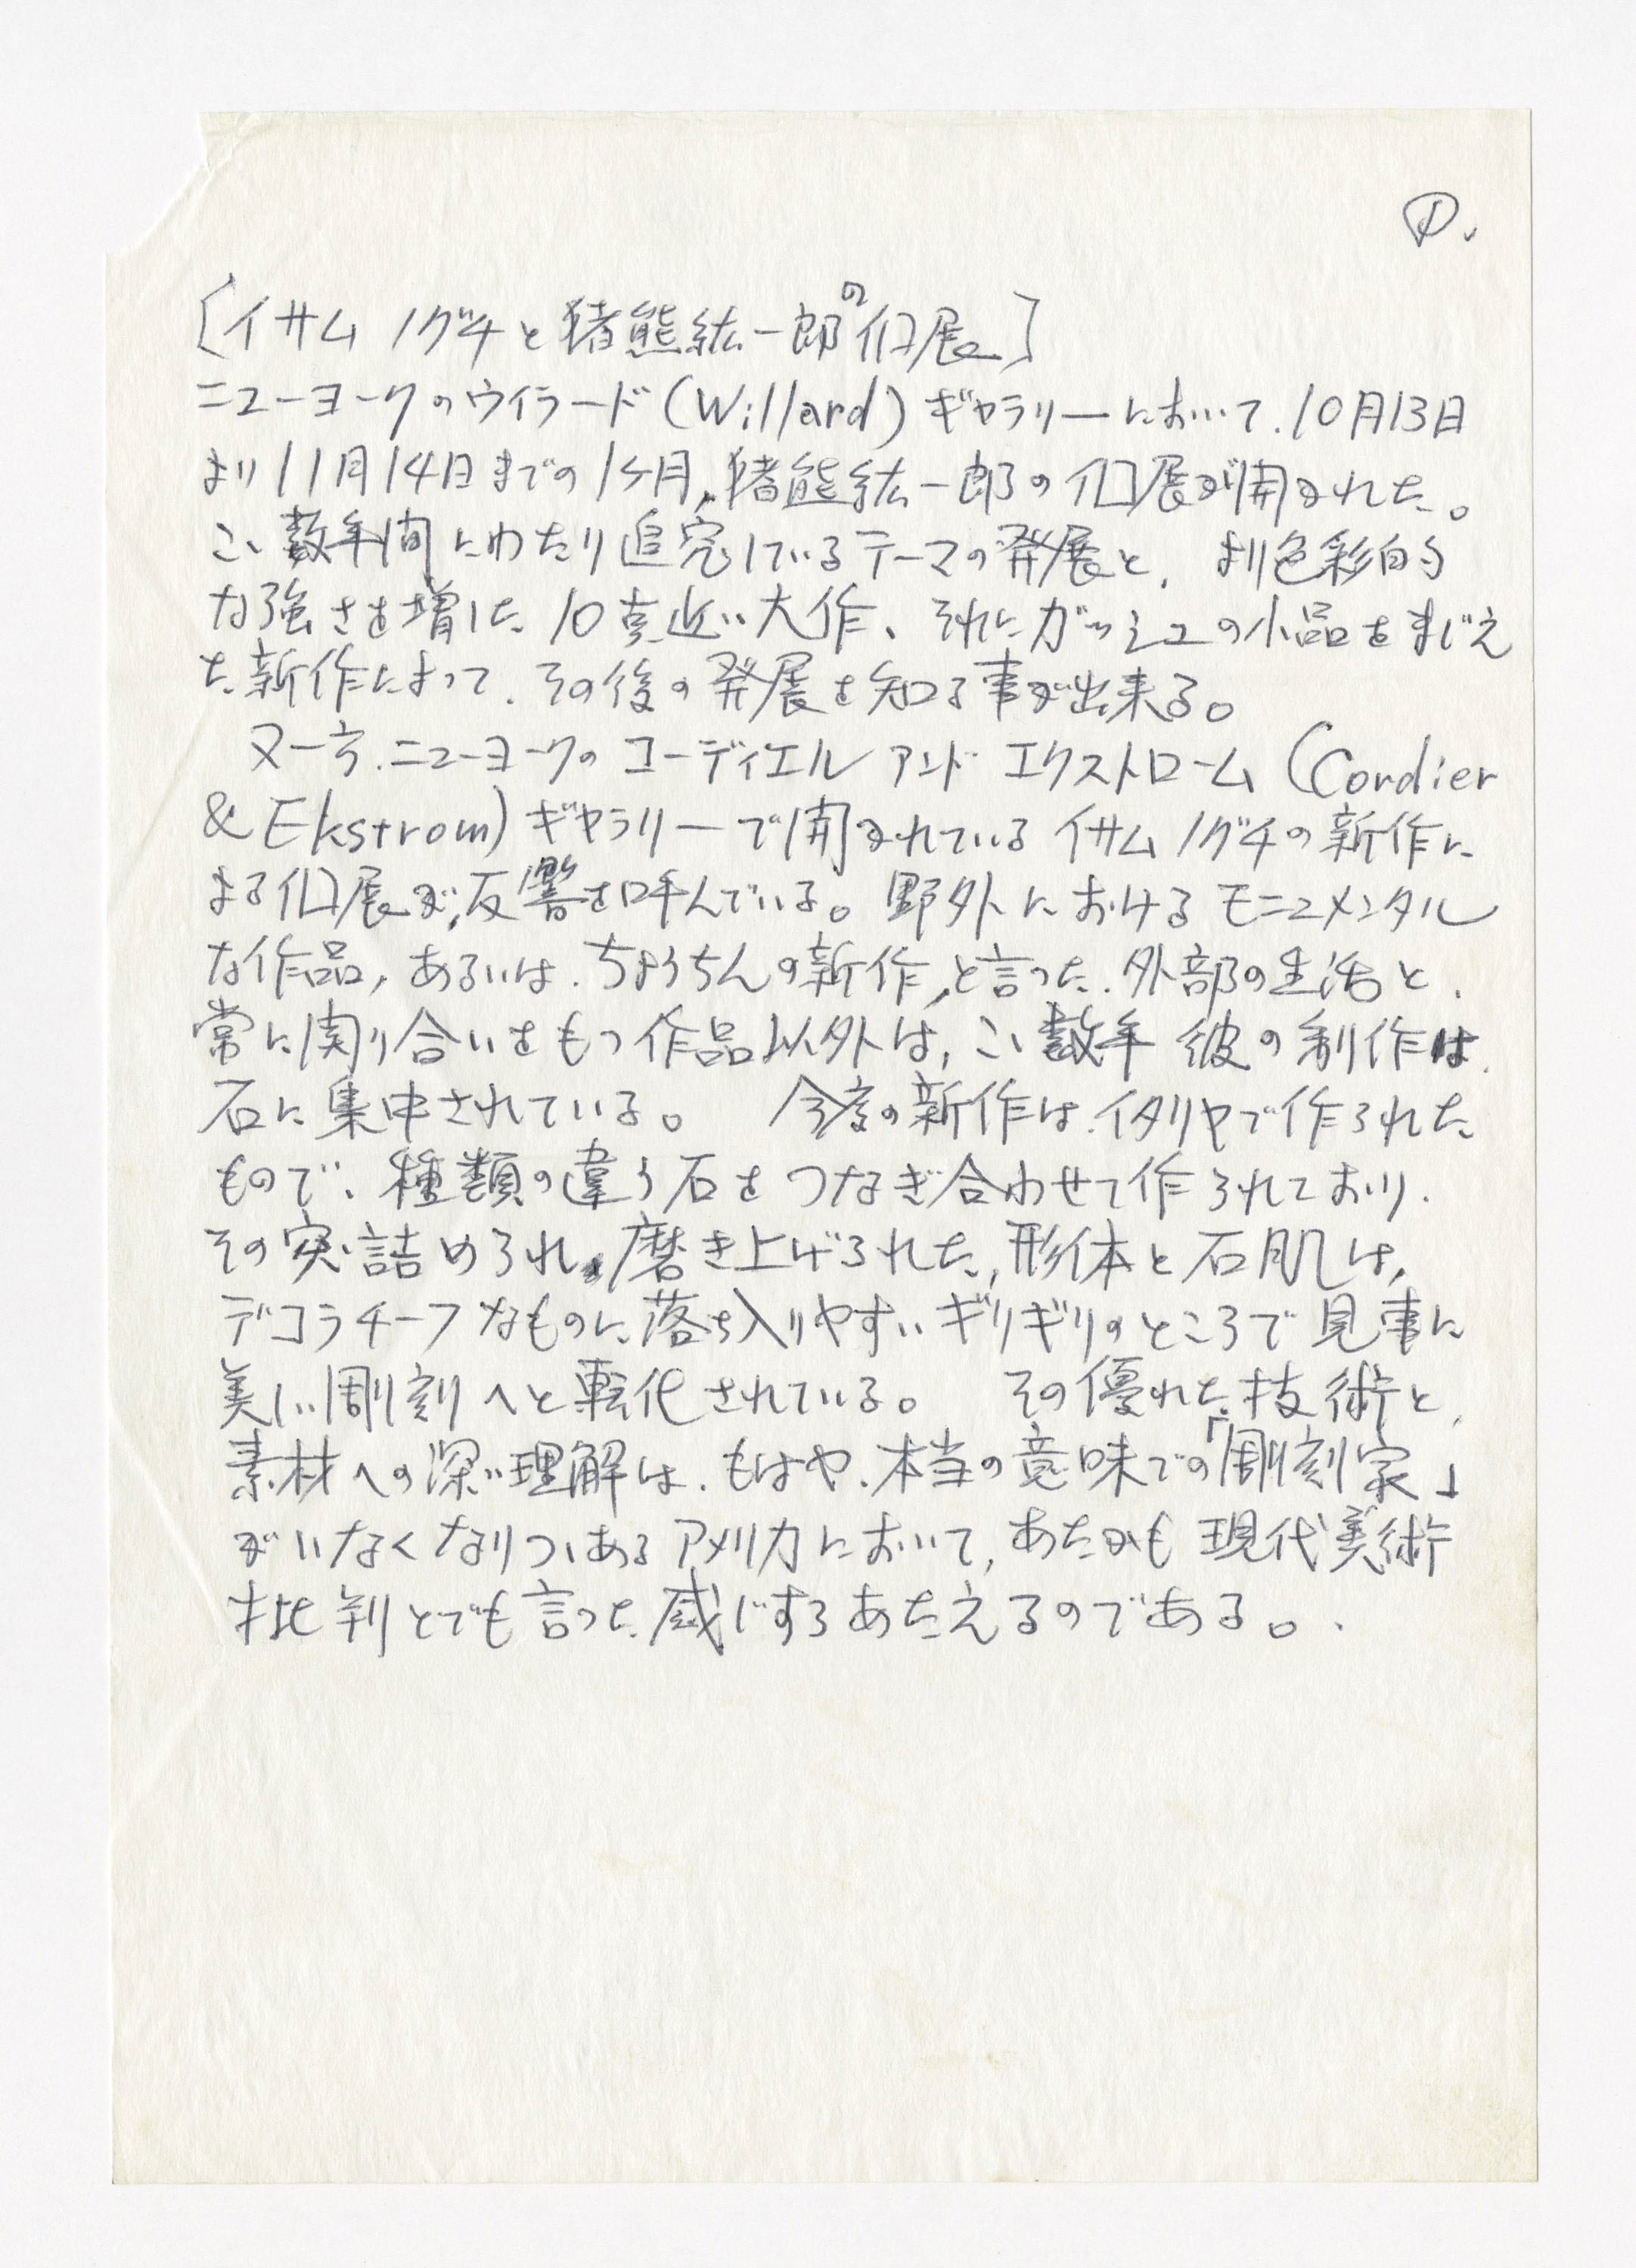 ①.
[イサム ノグチと猪熊絃一郎の個展]
ニューヨークのウイラード(Willard)ギャラリーにおいて、10月13日
より11月14日までの1ヶ月、猪熊絃一郎の個展が開かれた。
こゝ数年間にわたり追究しているテーマの発展と、より色彩的
な強さを増した10点近い大作、それにガッシュの小品をまじえ
た新作によって、その後の発展を知る事が出来る。
又一方、ニューヨークのコーディエル アンド エクストローム(Cordier
& Ekstrom)ギャラリーで開かれているイサム ノグチの新作に
よる個展が、反響を呼んでいる。野外におけるモニュメンタル
な作品、あるいは、ちようちんの新作、と言った、外部の生活と、
常に関り合いをもつ作品以外は、こゝ数年 彼の制作は、
石に集中されている。 今度の新作は、イタリヤで作られた
もので、種類の違う石をつなぎ合わせて作られており、
その突詰められ、磨き上げられた、形体と石肌は、
デコラチーフなものに落ち入りやすいギリギリのところで見事に
美しい彫刻へと転化されている。 その優れた技術と、
素材への深い理解は、もはや、本当の意味での「彫刻家」
がいなくなりつゝあるアメリカにおいて、あたかも現代美術
批判とでも言った感じすらあたえるのである。